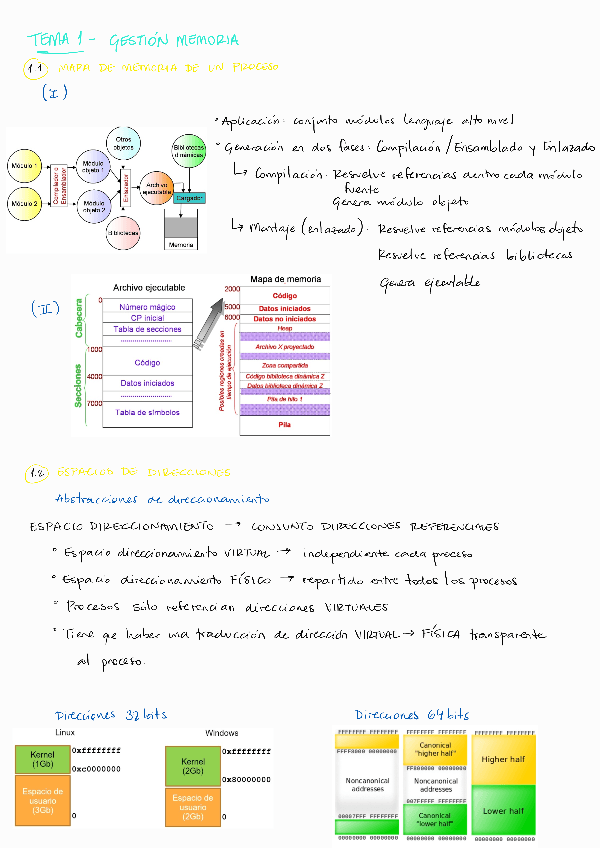 TEMA 1 - GESTIÓN MEMORIA
1.1 MAPA DE MEMORIA DE UN PROCESO
(I)
° Aplicación: conjunto módulos lenguaje alto nivel
° Generación en dos fases: Compilación / Ensamblado y Enlazado
↳ Compilación: Resuelve referencias dentro cada módulo
fuente
Genera módulo objeto
↳ Montaje (enlazado): Resuelve referencias módulos objeto
Resuelve referencias bibliotecas
Genera ejecutable
Otros
objetos
Bibliotecas
dinámicas
Módulo 1
Compilador o
Ensamblador
Módulo
objeto 1
Enlazador
Archivo
ejecutable
Cargador
Módulo 2
Módulo
objeto 2
Bibliotecas
Memoria
(II)
Archivo ejecutable
Cabecera
Secciones
0
Número mágico
CP inicial
Tabla de secciones
1000
Código
4000
Datos iniciados
7000
Tabla de símbolos
Mapa de memoria
2000
Código
5000
Datos iniciados
6000
Datos no iniciados
Heap
Posibles regiones creadas en
tiempo de ejecución
Archivo X proyectado
Zona compartida
Código biblioteca dinámica Z
Datos biblioteca dinámica Z
Pila de hilo 1
Pila
1.2 ESPACIOS DE DIRECCIONES
Abstracciones de direccionamiento
ESPACIO DIRECCIONAMIENTO → CONJUNTO DIRECCIONES REFERENCIALES
° Espacio direccionamiento VIRTUAL → independiente cada proceso
° Espacio direccionamiento FÍSICO → repartido entre todos los procesos
° Procesos sólo referencian direcciones VIRTUALES
° Tiene qe haber una traducción de dirección VIRTUAL → FÍSICA transparente
al proceso.
Direcciones 32 bits
Linux
Kernel
(1Gb)
0xffffffff
0xc0000000
Espacio de
usuario
(3Gb)
0
Windows
Kernel
(2Gb)
0xffffffff
0x80000000
Espacio de
usuario
(2Gb)
0
Direcciones 64 bits
FFFFFFFF FFFFFFFF
FFFF8000 00000000
Noncanonical
addresses
00007FFF FFFFFFFF
00000000 00000000
FFFFFFFF FFFFFFFF
Canonical
"higher half"
FF800000 00000000
Noncanonical
addresses
007FFFFF FFFFFFFF
Canonical
"lower half"
00000000 00000000
FFFFFFFF FFFFFFFF
Higher half
Lower half
00000000 00000000